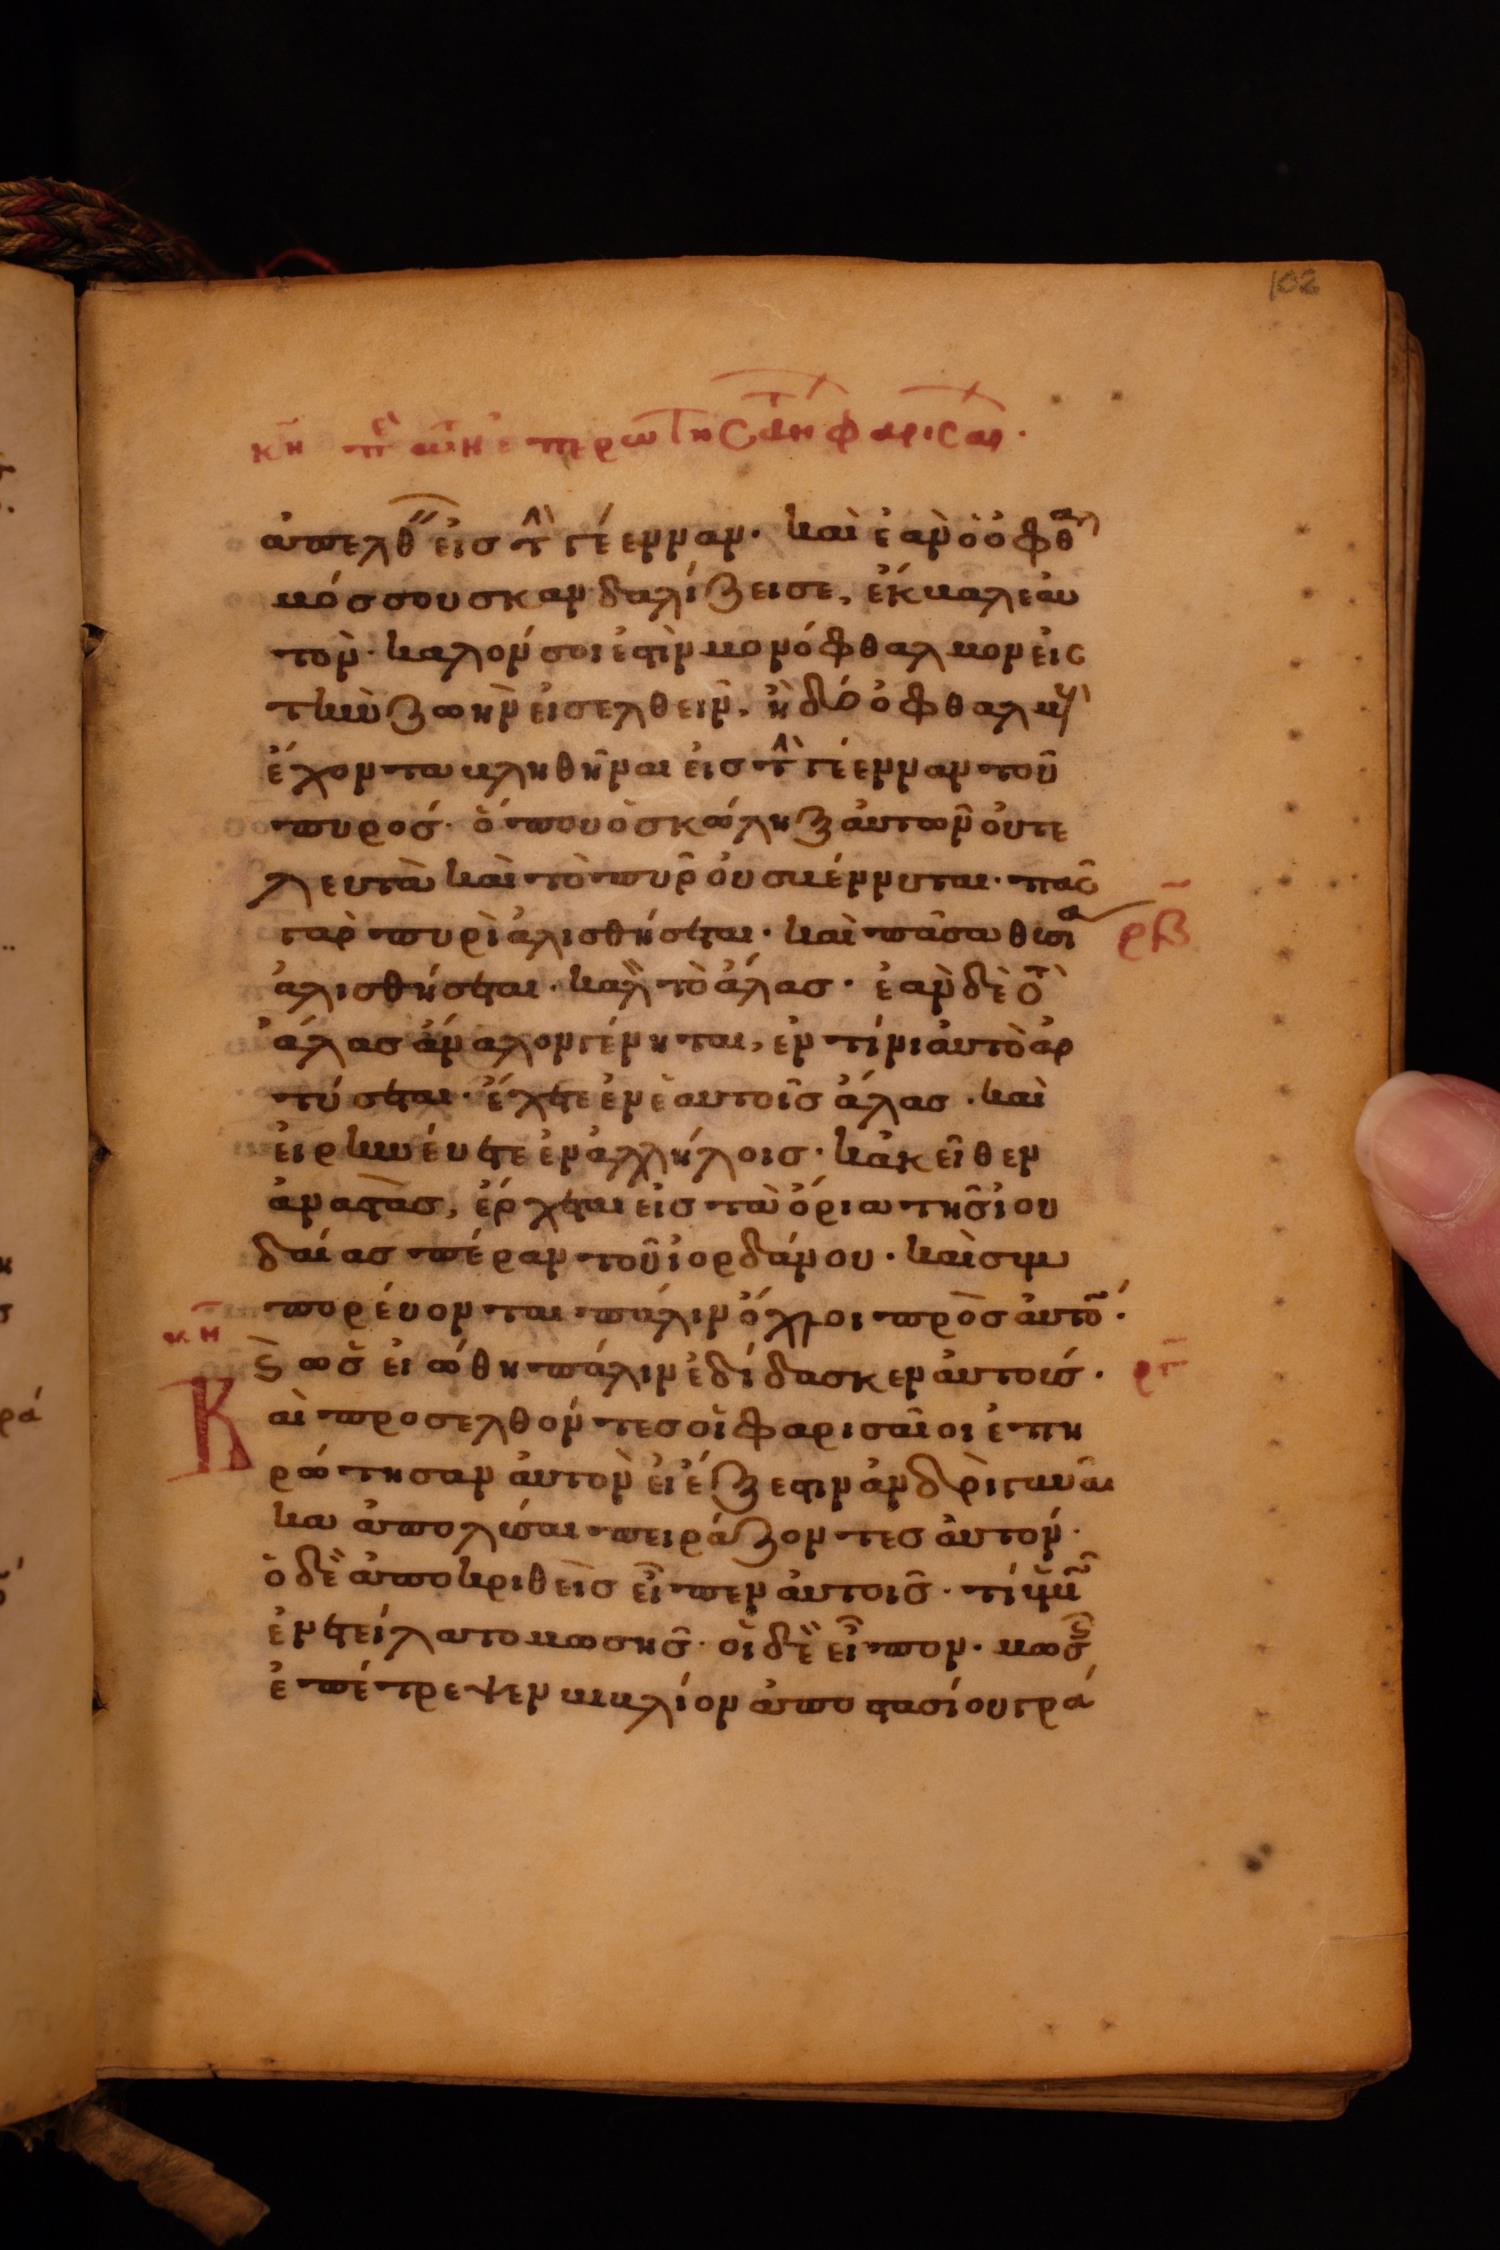 102
κη π τ επερωτησαν φαρισαι·
ἀπελθ εἰσ τ γέενναν· καὶ ἐὰν ὁ ὀφθαλ
μόσ σου σκανδαλίζει σε, ἔκβαλε ἀυ
τὸν· καλόν σοι ἐστὶν μονόφθαλμον εἰς
τὴν ζωὴν εἰσελθεῖν, ἢ δύο ὀφθαλμ
ἔχοντα βληθῆναι εἰσ τ γέενναν τοῦ
πυρόσ· ὅπου ὁ σκώληξ ἀυτῶν οὐ τε
λευτᾶ καὶ τὸ πῦρ οὐ σβέννυται· πᾶς
γὰρ πυρὶ ἁλισθήσεται· καὶ πᾶσα θυσία
ρβ
ἁλισθήσεται· καλ τὸ ἅλασ· ἐὰν δὲ τὸ
ἅλασ ἄναλον γένηται, ἐν τίνι ἀυτὸ ἀρ
τύσεται· ἔχετε ἐν ἑαυτοῖσ ἅλασ· καὶ
εἰρηνέυετε ἐν ἀλλήλοισ· κἀκεῖθεν
ἀναστὰσ, ἔρχεται εἰσ τὰ ὅρια τῆσ ἰου
δαίασ πέραν τοῦ ἰορδάνου· καὶ συμ
πορέυονται πάλιν ὄχλοι πρὸσ ἀυτο·
κη
ϛ ὡσ εἰώθη πάλιν ἐδίδασκεν ἀυτούσ·
ργ
Καὶ προσελθόντεσ οἱ φαρισαῖοι ἐπη
ρώτησαν ἀυτὸν εἰ ἔξεστιν ἀνδρὶ γυναῖ
κα ἀπολύσαι πειράζοντεσ ἀυτόν·
ὁ δὲ ἀποκριθεὶσ εἶπεν ἀυτοῖσ· τί ὑμῖ
ἐνετείλατο μωσῆσ· οἱ δὲ εἶπον· μωσ
ἐπέτρεψεν βιβλίον ἀποστασίου γρά